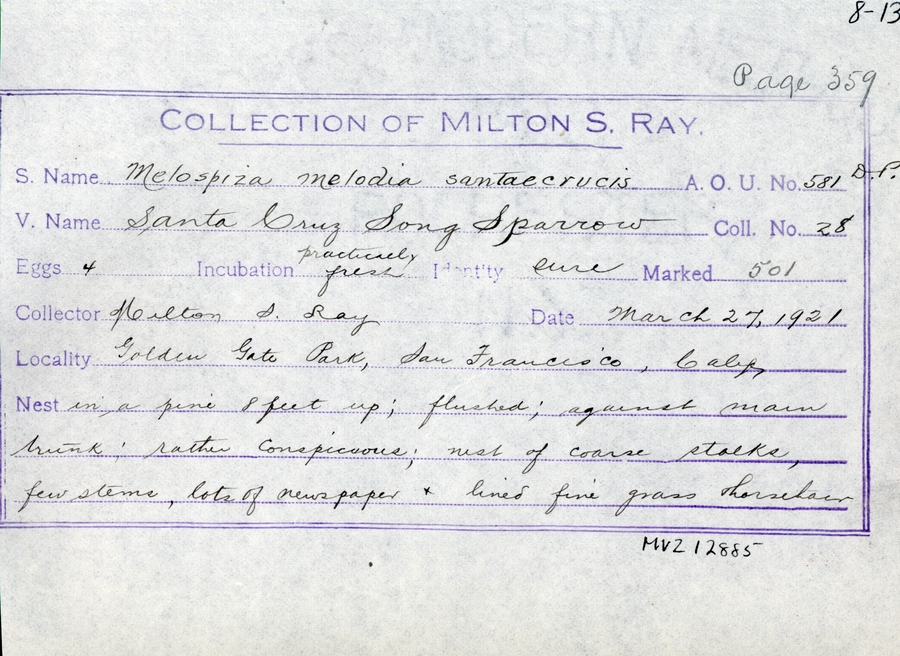 8-13
Page 359
COLLECTION OF MILTON S. RAY.
S. Name Melospiza melodia santaecrucis A. O. U. No. 581 D.P.
V. Name Santa Cruz Song Sparrow Coll. No. 28
Eggs 4 Incubation practically fresh Identity sure Marked 501
Collector Milton S. Ray Date March 27, 1921
Locality Golden Gate Park, San Francisco, Calif.
Nest in a pine 8 feet up; flushed; against main
trunk; rather conspicuous; nest of coarse stalks,
few stems, lots of newspaper & lined fine grass & horsehair
MVZ 12885